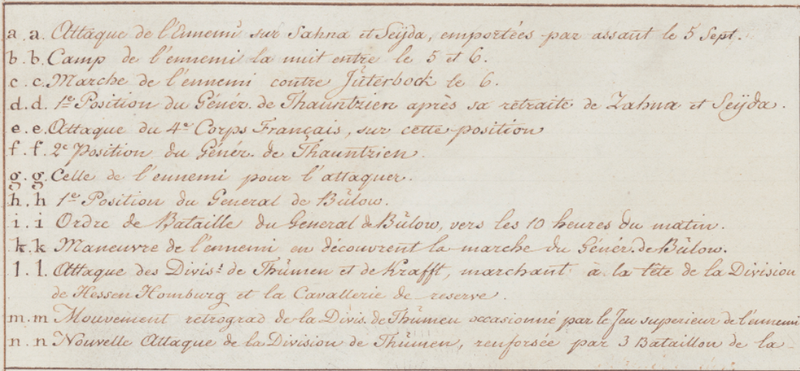 a . a . Attaque de l'Ennemi sur Sahna et Seÿda, emportées par assaut le 5 Sept.
b . b . Camp de l'ennemi la nuit entre le 5 et 6.
c . c . Marche de l'ennemi contre Jüterbock le 6.
d . d . 1re Position du Génér. de Thauntzien après sa retraite de Zahna et Seÿda.
e . e . Attaque du 4e Corps Français, sur cette position
f . f . 2e Position du Génér. de Thauntzien.
g . g . Celle de l'ennemi pour l'attaquer.
h . h 1re Position du General de Bülow.
i . i Ordre de Bataille du General de Bülow, vers les 10 heures du matin.
k . k Maneuvre de l'ennemi en découvrent la marche du Génér. de Bülow.
l . l . Attaque des Divis.s de Thümen et de Krafft, marchant à la tête de la Division
de Hessen Homburg et la Cavallerie de reserve.
m . m Mouvement retrograd de la Divis. de Thümen occasionné par le Jeu superieur de l'ennemi
n . n Nouvelle Attaque de la Division de Thümen, renforsée par 3 Bataillon de la